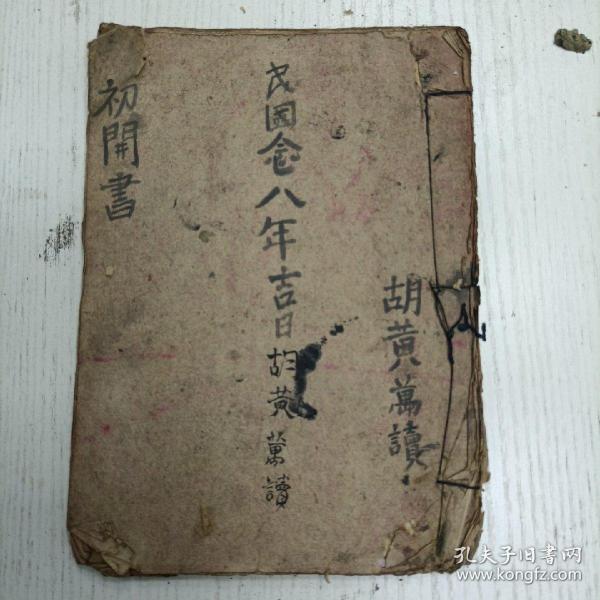 胡黃萬讀
民國念八年吉日胡黃萬讀
初開書
孔夫子旧书网
www.kongfz.com